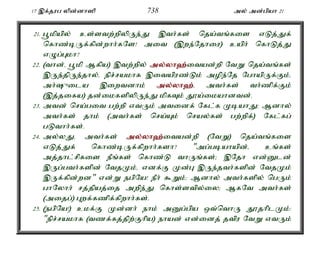 17 இக்தரப லின்னாஸி 738 அல் அன்பியா 21
21. பூமியில் உள்ளவற்றிலிருந்து இவர்கள் தெய்வங்களை எடுத்துக்
கொண்டிருக்கின்றார்களே! அவை (இறந்தோரை) உயிர் கொடுத்து
எழுப்புமா?
22. (வான், பூமி ஆகிய) இவற்றில் அல்லாஹ்வையன்றி வேறு தெய்வங்கள்
இருந்திருந்தால், நிச்சயமாக இவையிரண்டும் அழிந்தே போயிருக்கும்.
அர்ஷுடைய இறைவனாம் அல்லாஹ், அவர்கள் வர்ணிக்கும்
(இத்தகைய) தன்மைகளிலிருந்து மிகவும் தூய்மையானவன்.
23. அவன் செய்பவை பற்றி எவரும் அவனைக் கேட்க முடியாது; ஆனால்
அவர்கள் தாம் (அவர்கள் செய்யும் செயல்கள் பற்றிக்) கேட்கப்
படுவார்கள்.
24. அல்லது, அவர்கள் அல்லாஹ்வையன்றி (வேறு) தெய்வங்களை
எடுத்துக் கொண்டிருக்கிறார்களா? "அப்படியாயின், உங்கள்
அத்தாட்சிகளை நீங்கள் கொண்டு வாருங்கள்; இதோ என்னுடன்
இருப்பவர்களின் வேதமும், எனக்கு முன்பு இருந்தவர்களின் வேதமும்
இருக்கின்றன" என்று நபியே! நீர் கூறும்; ஆனால் அவர்களில் பெரும்
பாலோர் சத்தியத்தை அறிந்து கொள்ளவில்லை; ஆகவே அவர்கள்
(அதைப்) புறக்கணிக்கிறார்கள்.
25. (நபியே!) உமக்கு முன்னர் நாம் அனுப்பிய ஒவ்வொரு தூதரிடமும்:
"நிச்சயமாக (வணக்கத்திற்குரிய) நாயன் என்னைத் தவிர வேறு எவரும்